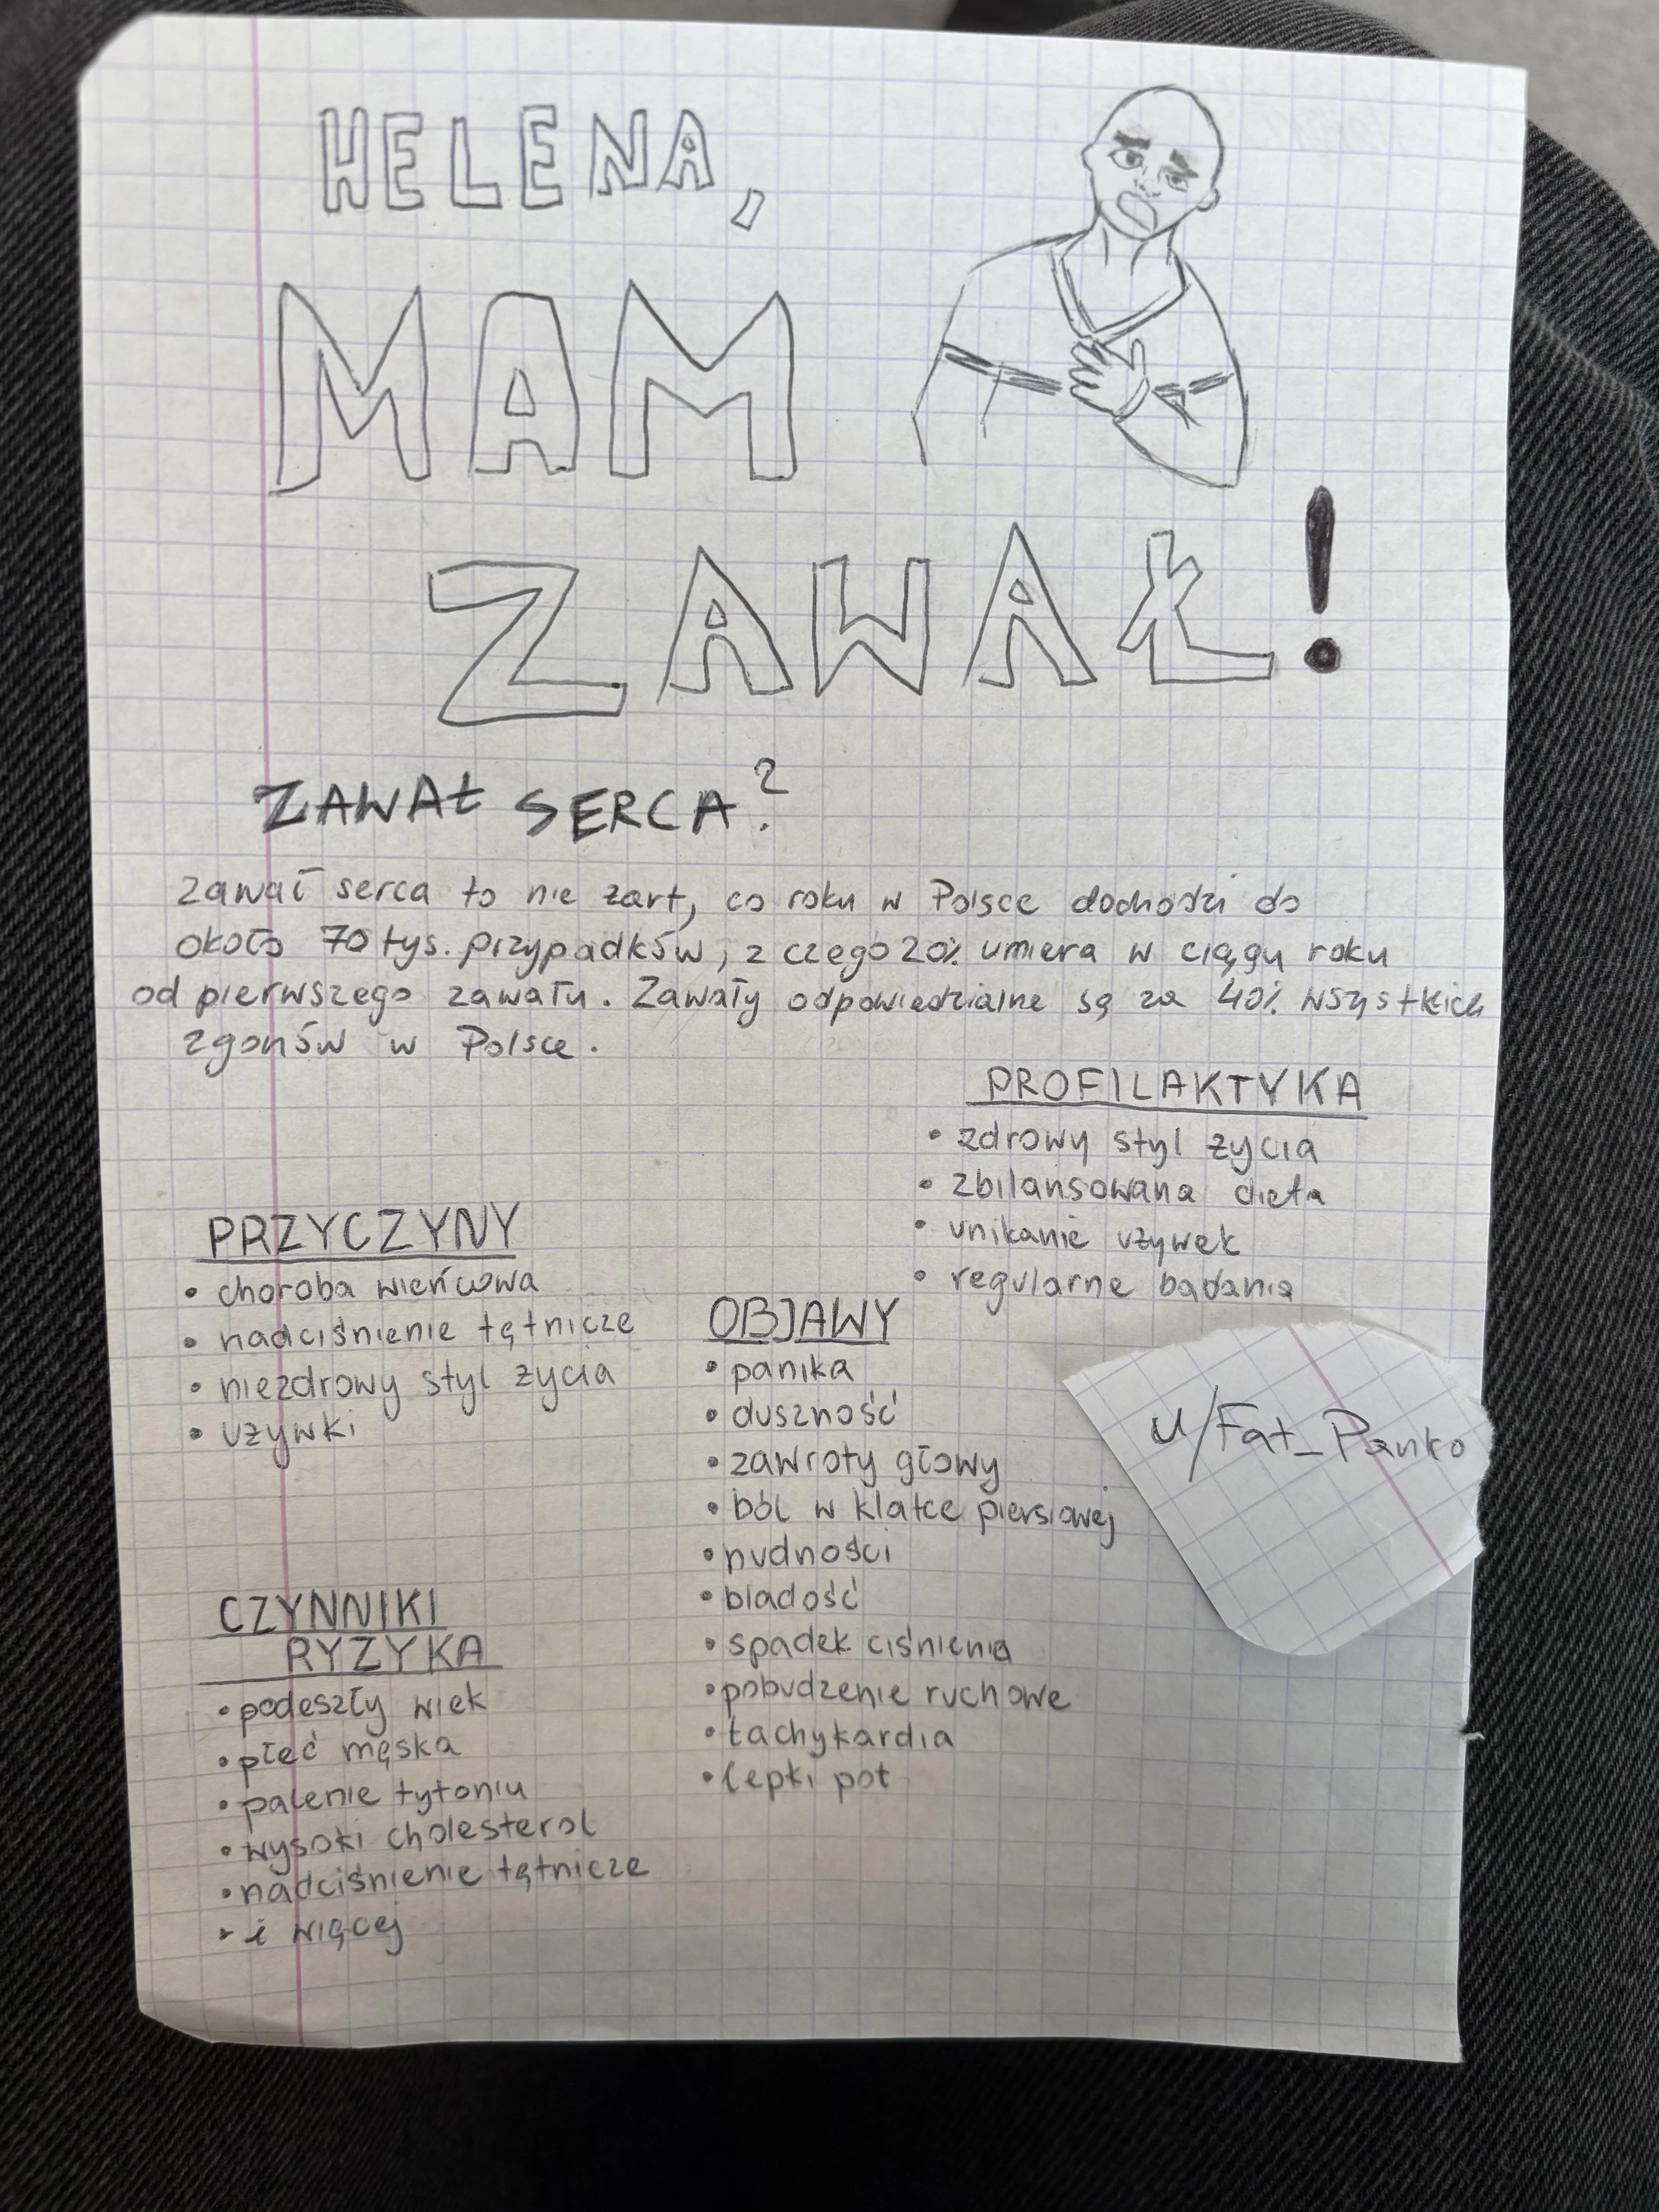 HELENA,
MAM
ZAWAŁ!
ZAWAŁ SERCA?
Zawał serca to nie żart, co roku w Polsce dochodzi do
około 70 tys. przypadków, z czego 20% umiera w ciągu roku
od pierwszego zawału. Zawały odpowiedzialne są za 40% wszystkich
zgonów w Polsce.
PROFILAKTYKA
• zdrowy styl życia
• zbilansowana dieta
• unikanie używek
• regularne badania
PRZYCZYNY
• choroba wieńcowa
• nadciśnienie tętnicze
• niezdrowy styl życia
• używki
OBJAWY
• panika
• duszność
• zawroty głowy
• ból w klatce piersiowej
• nudności
• bladość
• spadek ciśnienia
• pobudzenie ruchowe
• tachykardia
• lepki pot
u/Fat_Panko
CZYNNIKI
RYZYKA
• podeszły wiek
• płeć męska
• palenie tytoniu
• wysoki cholesterol
• nadciśnienie tętnicze
• i więcej